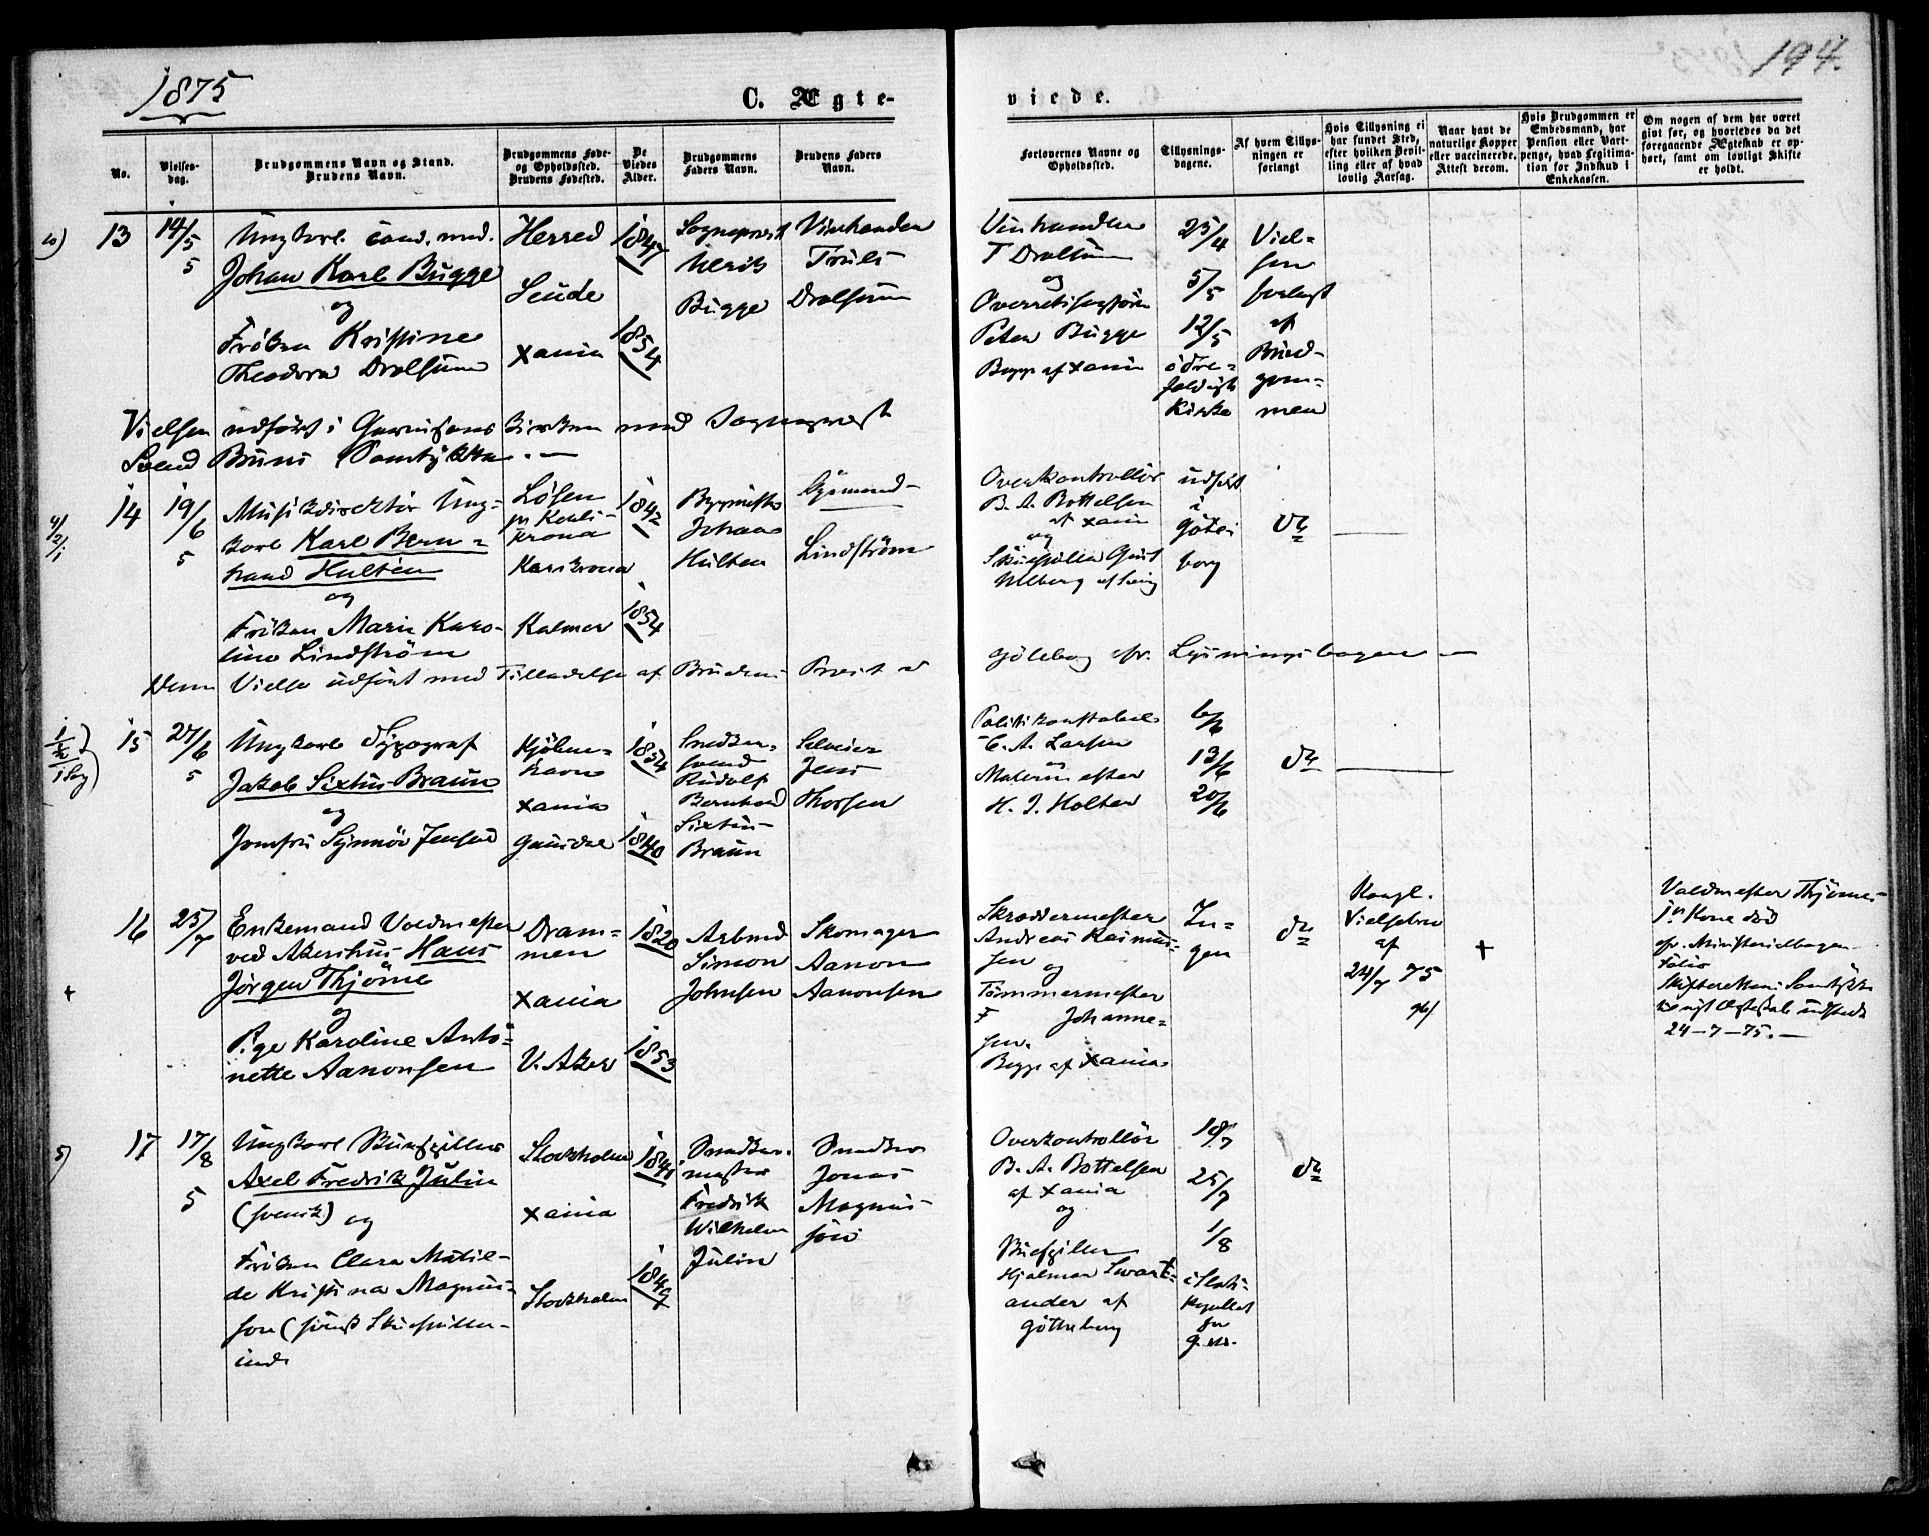 1875
194.
C. Ægte-
viede.
No.
Vielses-
dag.
Brudgommens Navn og Stand.
Brudens Navn.
Brudgommens Føde-
og Opholdssted.
Brudens Fødested.
De
Viedes
Alder.
Brudgommens
Faders Navn.
Brudens Faders
Navn.
Forlovernes Navne og
Opholdssted.
Tillysnings-
dagene.
Af hvem Tillys-
ningen er
forlangt
Hvis Tillysning ei
har fundet Sted,
efter hvilken Bevil-
ling eller af hvad
lovlig Aarsag.
Naar havt de
naturlige Kopper
eller vaccinerede.
Attest derom.
Hvis Brudgommen er
Embedsmand, har
Pension eller Vart-
penge, hvad Legitima-
tion for Indskud i
Enkekassen.
Om nogen af dem har været
givt før, og hvorledes da det
foregaaende Ægteskab er op-
hørt, samt om lovligt Skifte
er holdt.
13
14/5
5
Ungkarl cand. med.
Johan Karl Bugge
og
Frøken Kristine
Theodora Dralsum
Herred
Seude
Xania
1847
1854
Sogneprest
Ulrik
Bugge
Vinhandler
Truls
Dralsum
Vinhandler
T Dralsum
og
Overretssagfører
Peter Bugge
Begge af Xania
25/4
5/5
12/5
i Tre-
foldigh
Kirke
Viel-
sen
forlagt
af
Brud-
gom-
men
Vielsen udført i Garnisons Kirken med Sogneprest
Svend Bruns Samtykke. —
14
19/6
5
Musikdirektør Ung-
karl Karl Bern-
hard Hulten
og
Frøken Marie Karo-
line Lindström
Løsen
pr Karls-
krona
Karlskrona
Kalmar
1842
1854
Byggmester
Johan
Hulten
Lindström
Overkontrollør
B. A. Bottelsen
af Xania
og
udført
i
Göte-
borg
do
Denne Vielse udført med Tilladelse af Brudens Prest i
Göteborg efr. Lysningsbogen —
15
27/6
5
Ungkarl Typograf
Jakob Sixtus Braun
og
Jomfru Synnöv Jensen
Kjøben-
havn
Xania
Gausdal
1854
1840
Snedker
Svend
Rudolf
Bernhard
Sixtus
Braun
Selveier
Jens
Thorsen
Politikonstabel
C. A. Larsen
og
Malermester
H. J. Holter
6/6
13/6
20/6
do
16
25/7
Enkemand Voldmester
ved Akershus Hans
Jørgen Thjøme
og
Pige Karoline Anto-
nette Aanonsen
Dram-
men
Xania
V. Aker
1820
1853
Arbmd
Simon
Johnsen
Skomager
Aanon
Aanonsen
Skreddermester
Andreas Rasmus-
sen
og
Tømmermester
F Johanne-
sen.
Begge af Xania
In-
gen
do
Kongl.
Vielsebrev
af
24/7 75
+
Voldmester Thjømes
Kone død
efr. Ministerialbogen
folio
Skifterettens Samtykke
til nyt Ægteskab udstedt
24-7-75. —
+
17
17/8
5
Ungkarl Skuespiller
Axel Fredrik Julin
(svensk) og
Frøken Clara Matil-
de Kristina Magnus-
son (svensk Skuespiller-
inde
Stockholm
Xania
Stockholm
1849
Snedker-
mester
Fredrik
Wilhelm
Julin
Snedker
Jonas
Magnus-
son
Overkontrollør
B. A. Bottelsen
af Xania
og
Skuespiller
Hjalmar Swart-
ander af
Götheborg
18/7
25/7
1/8
i Slots-
kapellet
do